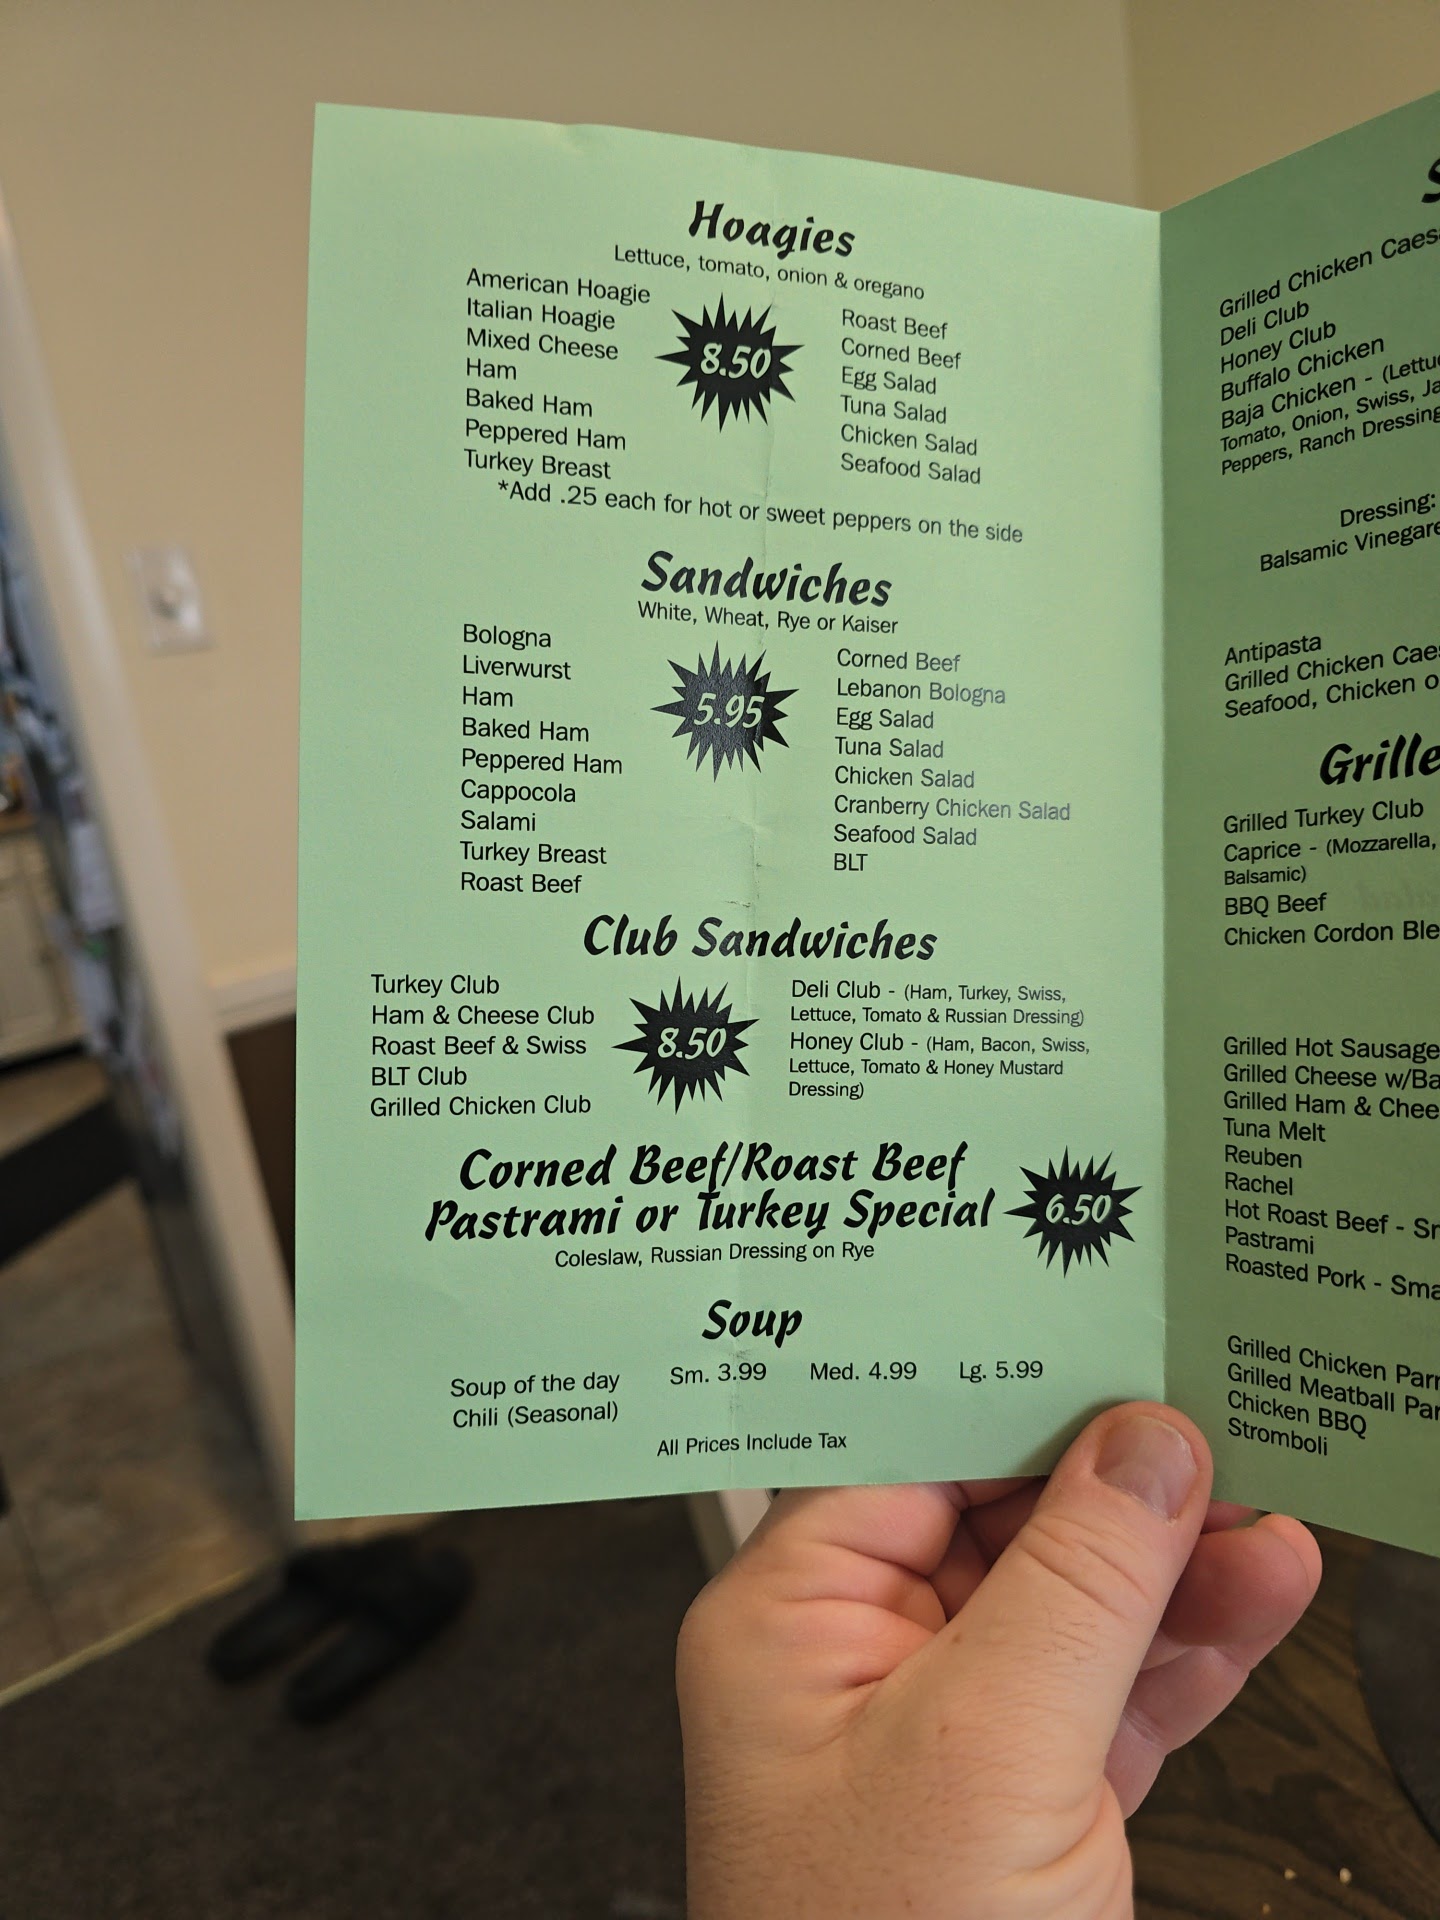 Hoagies
Lettuce, tomato, onion & oregano
American Hoagie
Italian Hoagie
Mixed Cheese
Ham
Baked Ham
Peppered Ham
Turkey Breast
8.50
Roast Beef
Corned Beef
Egg Salad
Tuna Salad
Chicken Salad
Seafood Salad
*Add .25 each for hot or sweet peppers on the side
Sandwiches
White, Wheat, Rye or Kaiser
Bologna
Liverwurst
Ham
Baked Ham
Peppered Ham
Cappocola
Salami
Turkey Breast
Roast Beef
5.95
Corned Beef
Lebanon Bologna
Egg Salad
Tuna Salad
Chicken Salad
Cranberry Chicken Salad
Seafood Salad
BLT
Club Sandwiches
Turkey Club
Ham & Cheese Club
Roast Beef & Swiss
BLT Club
Grilled Chicken Club
8.50
Deli Club - (Ham, Turkey, Swiss,
Lettuce, Tomato & Russian Dressing)
Honey Club - (Ham, Bacon, Swiss,
Lettuce, Tomato & Honey Mustard
Dressing)
Corned Beef/Roast Beef
Pastrami or Turkey Special
6.50
Coleslaw, Russian Dressing on Rye
Soup
Soup of the day Sm. 3.99 Med. 4.99 Lg. 5.99
Chili (Seasonal)
All Prices Include Tax
Grilled Chicken Caes
Deli Club
Honey Club
Buffalo Chicken
Baja Chicken - (Lettu
Tomato, Onion, Swiss, Ja
Peppers, Ranch Dressing
Dressing:
Balsamic Vinegare
Antipasta
Grilled Chicken Cae
Seafood, Chicken o
Grille
Grilled Turkey Club
Caprice - (Mozzarella,
Balsamic)
BBQ Beef
Chicken Cordon Ble
Grilled Hot Sausage
Grilled Cheese w/Ba
Grilled Ham & Chee
Tuna Melt
Reuben
Rachel
Hot Roast Beef - Sm
Pastrami
Roasted Pork - Sma
Grilled Chicken Parm
Grilled Meatball Par
Chicken BBQ
Stromboli